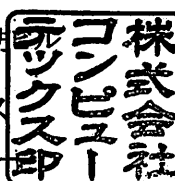 株式会社
コンピュー
ックス印